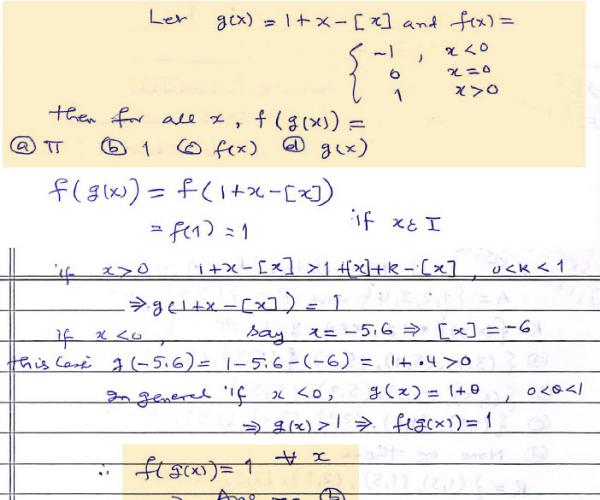 Let g(x) = 1+x-[x] and f(x) =
{ -1 , x<0
0 x=0
1 x>0
then for all x, f(g(x)) =
(a) π (b) 1 (c) f(x) (d) g(x)
f(g(x)) = f(1+x-[x])
= f(1) = 1 if x ε I
if x>0 1+x-[x] > 1+[x]+k-[x] , 0<k<1
⇒ g(1+x-[x]) = 1
if x<0, say x = -5.6 ⇒ [x] = -6
this case g(-5.6) = 1-5.6-(-6) = 1+.4>0
In general if x<0, g(x) = 1+θ , 0<θ<1
⇒ g(x)>1 ⇒ f(g(x)) = 1
∴ f(g(x)) = 1 ∀ x